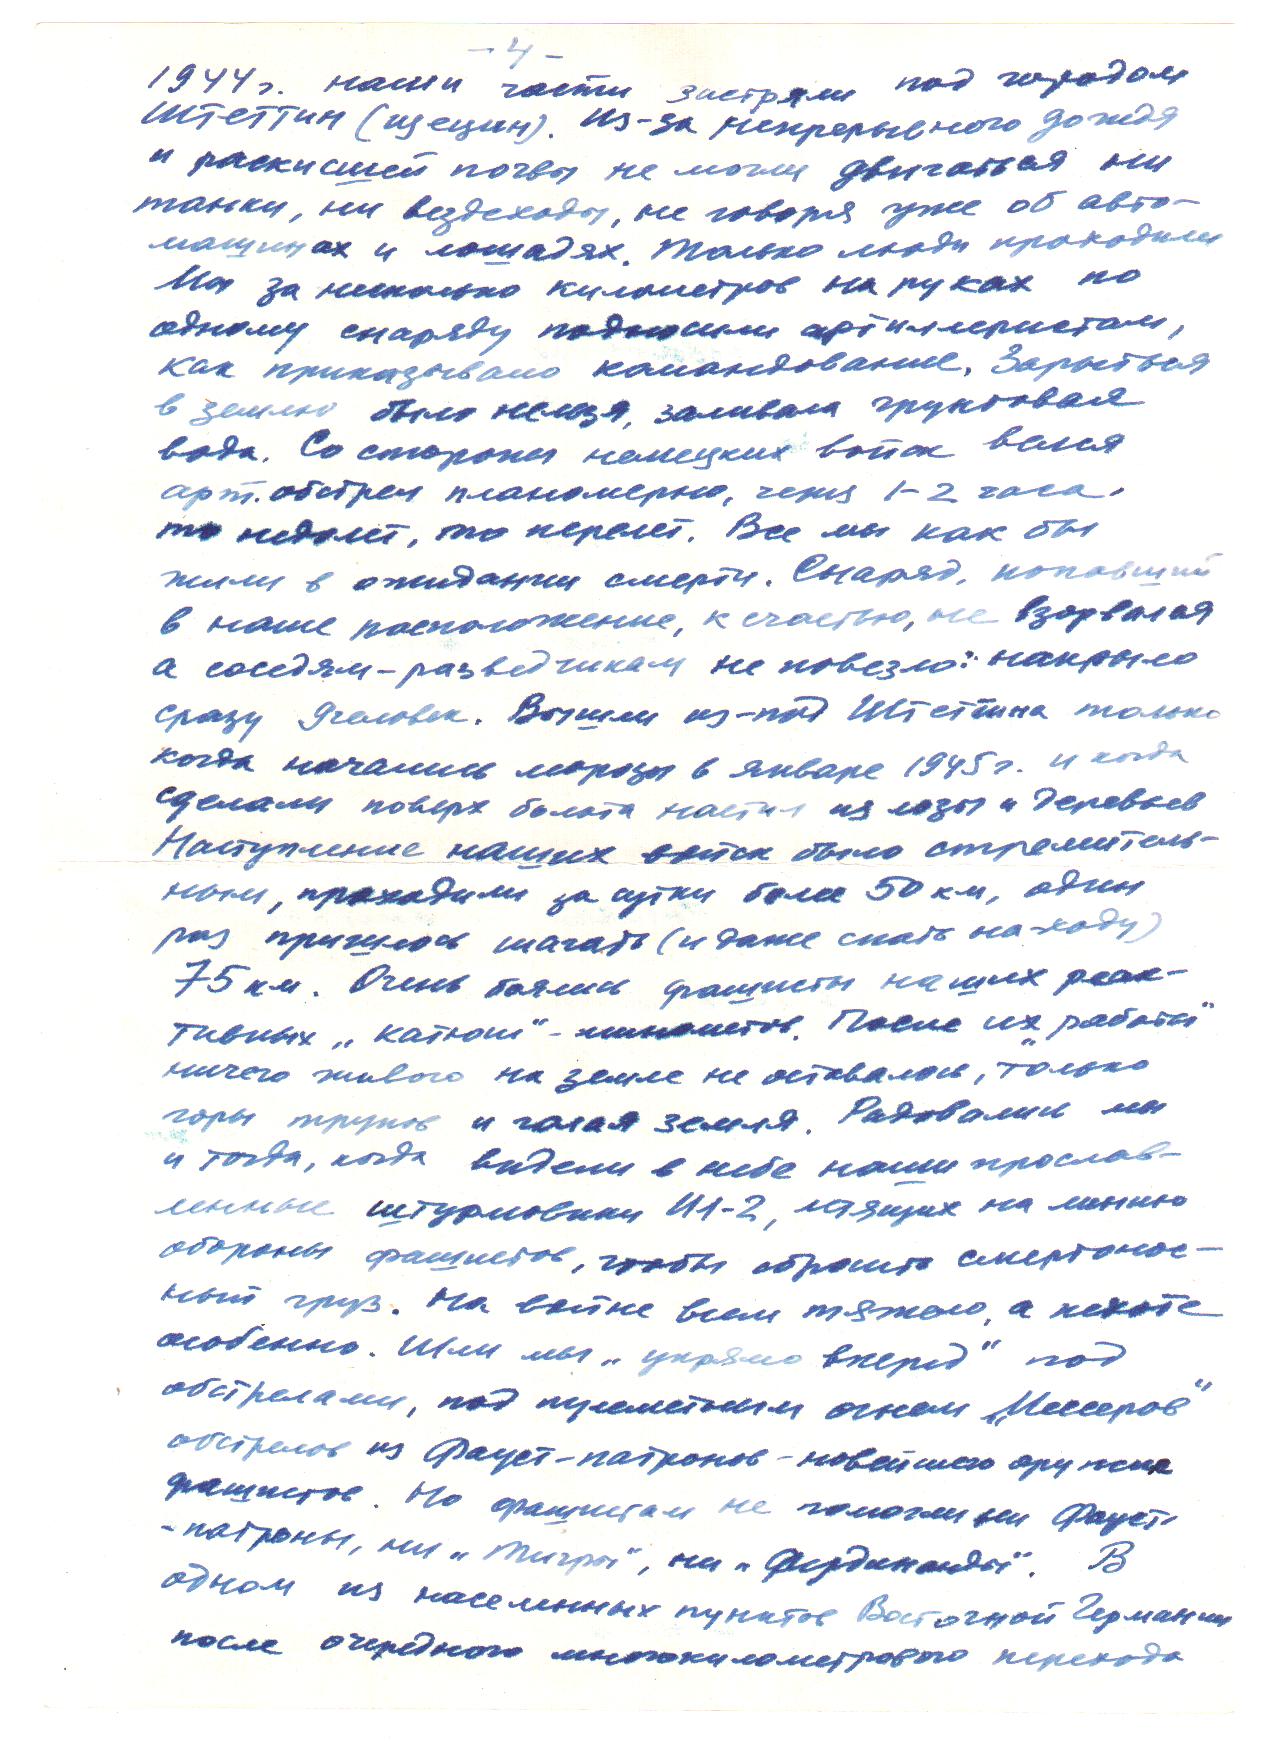 - 4 -
1944 г. наши части застряли под городом
Штеттин (Щецин). Из-за непрерывного дождя
и раскисшей почвы не могли двигаться ни
танки, ни вездеходы, не говоря уже об авто-
машинах и лошадях. Только люди проходили
Мы за несколько километров на руках по
одному снаряду подносили артиллеристам,
как приказывало командование. Зарыться
в землю было нельзя, заливала грунтовая
вода. Со стороны немецких войск велся
арт. обстрел планомерно, через 1-2 часа.
то недолет, то перелет. Все мы как бы
жили в ожидании смерти. Снаряд, попавший
в наше расположение, к счастью, не взорвался
а соседям-разведчикам не повезло: накрыло
сразу 9 человек. Вышли из-под Штеттина только
когда начались морозы в январе 1945 г. и когда
сделали поверх болота настил из лозы и деревьев
Наступление наших войск было стремитель-
ным, проходили за сутки более 50 км, один
раз пришлось шагать (и даже спать на-ходу)
75 км. Очень боялись фашисты наших реак-
тивных „Катюш" - минометов. После их „работы"
ничего живого на земле не оставалось, только
горы трупов и голая земля. Радовались мы
и тогда, когда видели в небе наши прослав-
ленные штурмовики Ил-2, летящих на линию
обороны фашистов, чтобы сбросить смертонос-
ный груз. На войне всем тяжело, а пехоте
особенно. Шли мы „упрямо вперед" под
обстрелами, под пулеметным огнем „Мессеров"
обстрелов из Фауст-патронов - новейшего оружия
фашистов. Но фашистам не помогли ни Фауст-
-патроны, ни „Тигры", ни „Фердинанды". В
одном из населенных пунктов Восточной Германии
после очередного многокилометрового перехода